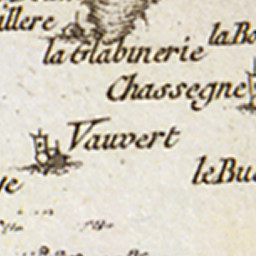 illere
la Ba
la Glabinerie
Chassegne
Vauvert
le Bu